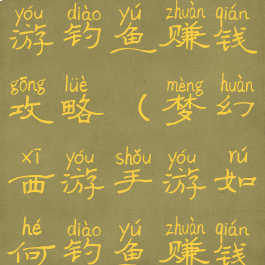 yóu diào yú zhuàn qián
游钓鱼赚钱
gōng lüè mèng huàn
攻略（梦幻
xī yóu shǒu yóu rú
西游手游如
hé diào yú zhuàn qián
何钓鱼赚钱